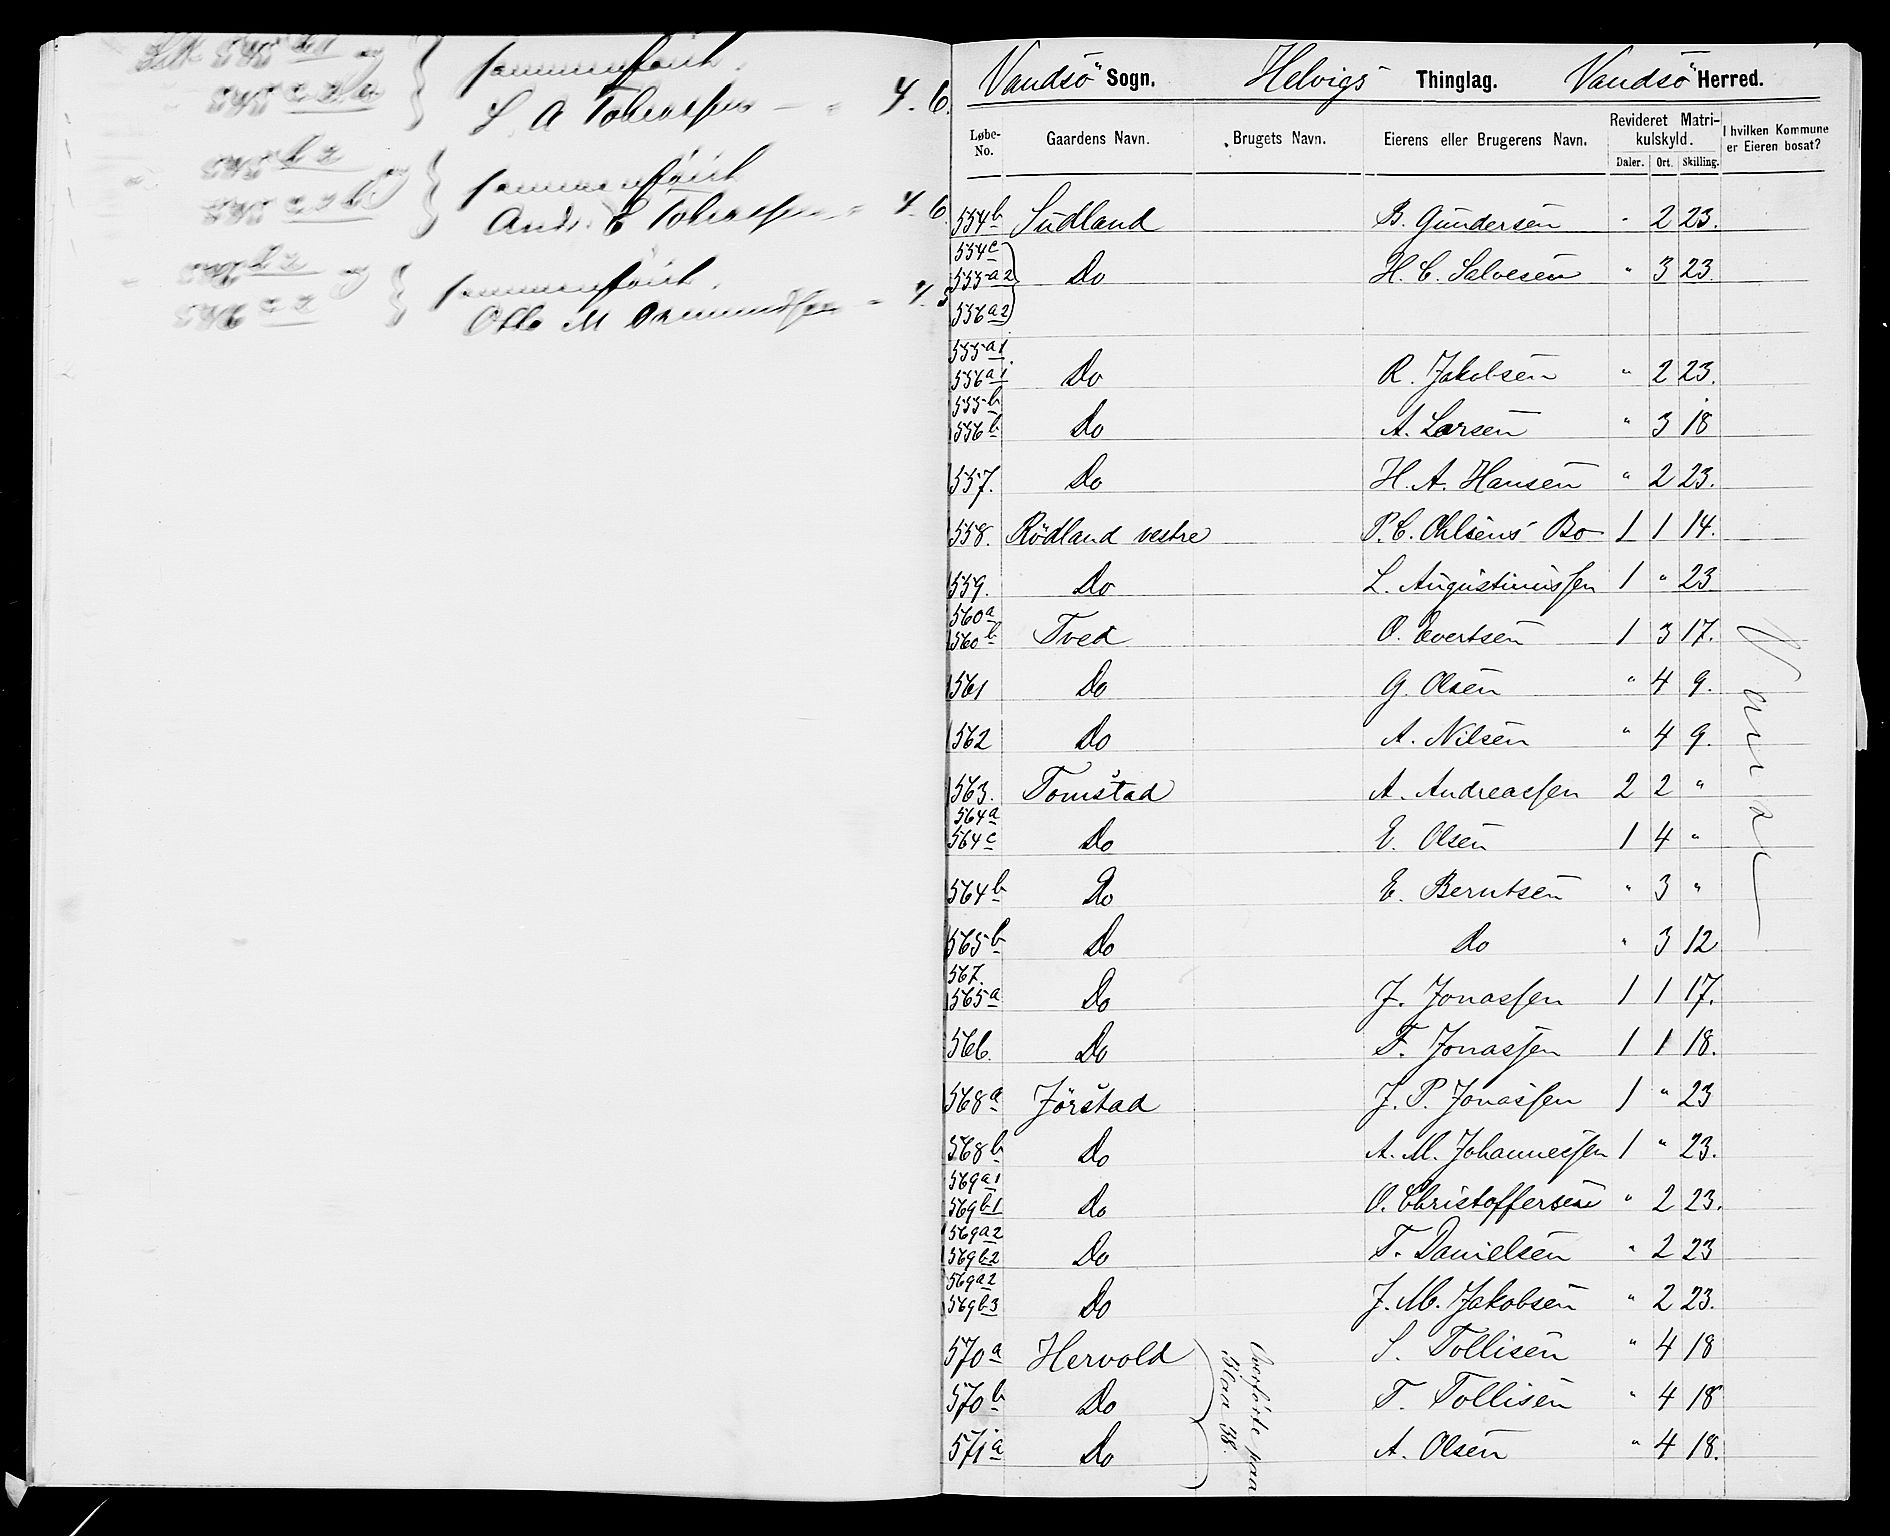 sammenføiet.
4. 6.
sammenføiet
4. 6
sammenføiet.
Otto M
Vandsö Sogn. Helvigs Thinglag. Vandsö Herred.
Løbe-No. Gaardens Navn. Brugets Navn. Eierens eller Brugerens Navn. Revideret Matrikulskyld. Daler. Ort. Skilling. I hvilken Kommune er Eieren bosat?
554b Sudland B. Gundersen " 2 23.
554c
555a2 Do H. C. Salvesen " 3 23.
556a2
555a1
556a1 Do R. Jakobsen " 2 23.
555b
556b Do A. Larsen " 3 18
557. Do H. A. Hansen " 2 23.
558. Rödland vestre P. C. Ohlsens Bo 1 1 14.
559. Do L. Augustinussen 1 " 23
560a
560b Tved O. Evertsen 1 3 17.
561 Do G. Olsen " 4 9.
562 Do A. Nilsen " 4 9.
563. Tomstad A. Andreassen 2 2 "
564a
564c Do E. Olsen 1 4 "
564b Do E. Berntsen " 3 "
565b Do Do " 3 12
567.
565a Do J. Jonassen 1 1 17.
566. Do T. Jonassen 1 1 18.
568a Jörstad J. P. Jonassen 1 " 23
568b Do A. M. Johannessen 1 " 23.
569a1
569b1 Do O. Christoffersen " 2 23.
569a2
569b2 Do T. Danielsen " 2 23
569a2
569b3 Do J. M. Jakobsen " 2 23.
570a Hervold S. Tollisen " 4 18
570b Do T. Tollisen " 4 18
571a Do A. Olsen " 4 18.
Overförte paa
38.